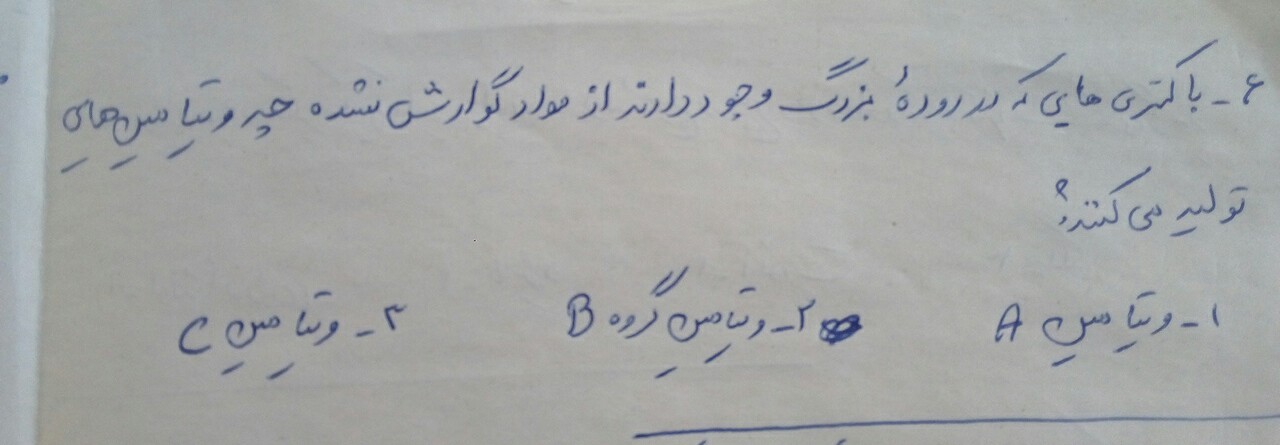 ۶- باکتری هایی که در رودهٔ بزرگ وجود دارند از مواد گوارش نشده چه ویتامین‌های
تولید می کنند؟
۱- ویتامین A ۲- ویتامین گروه B ۳- ویتامین C